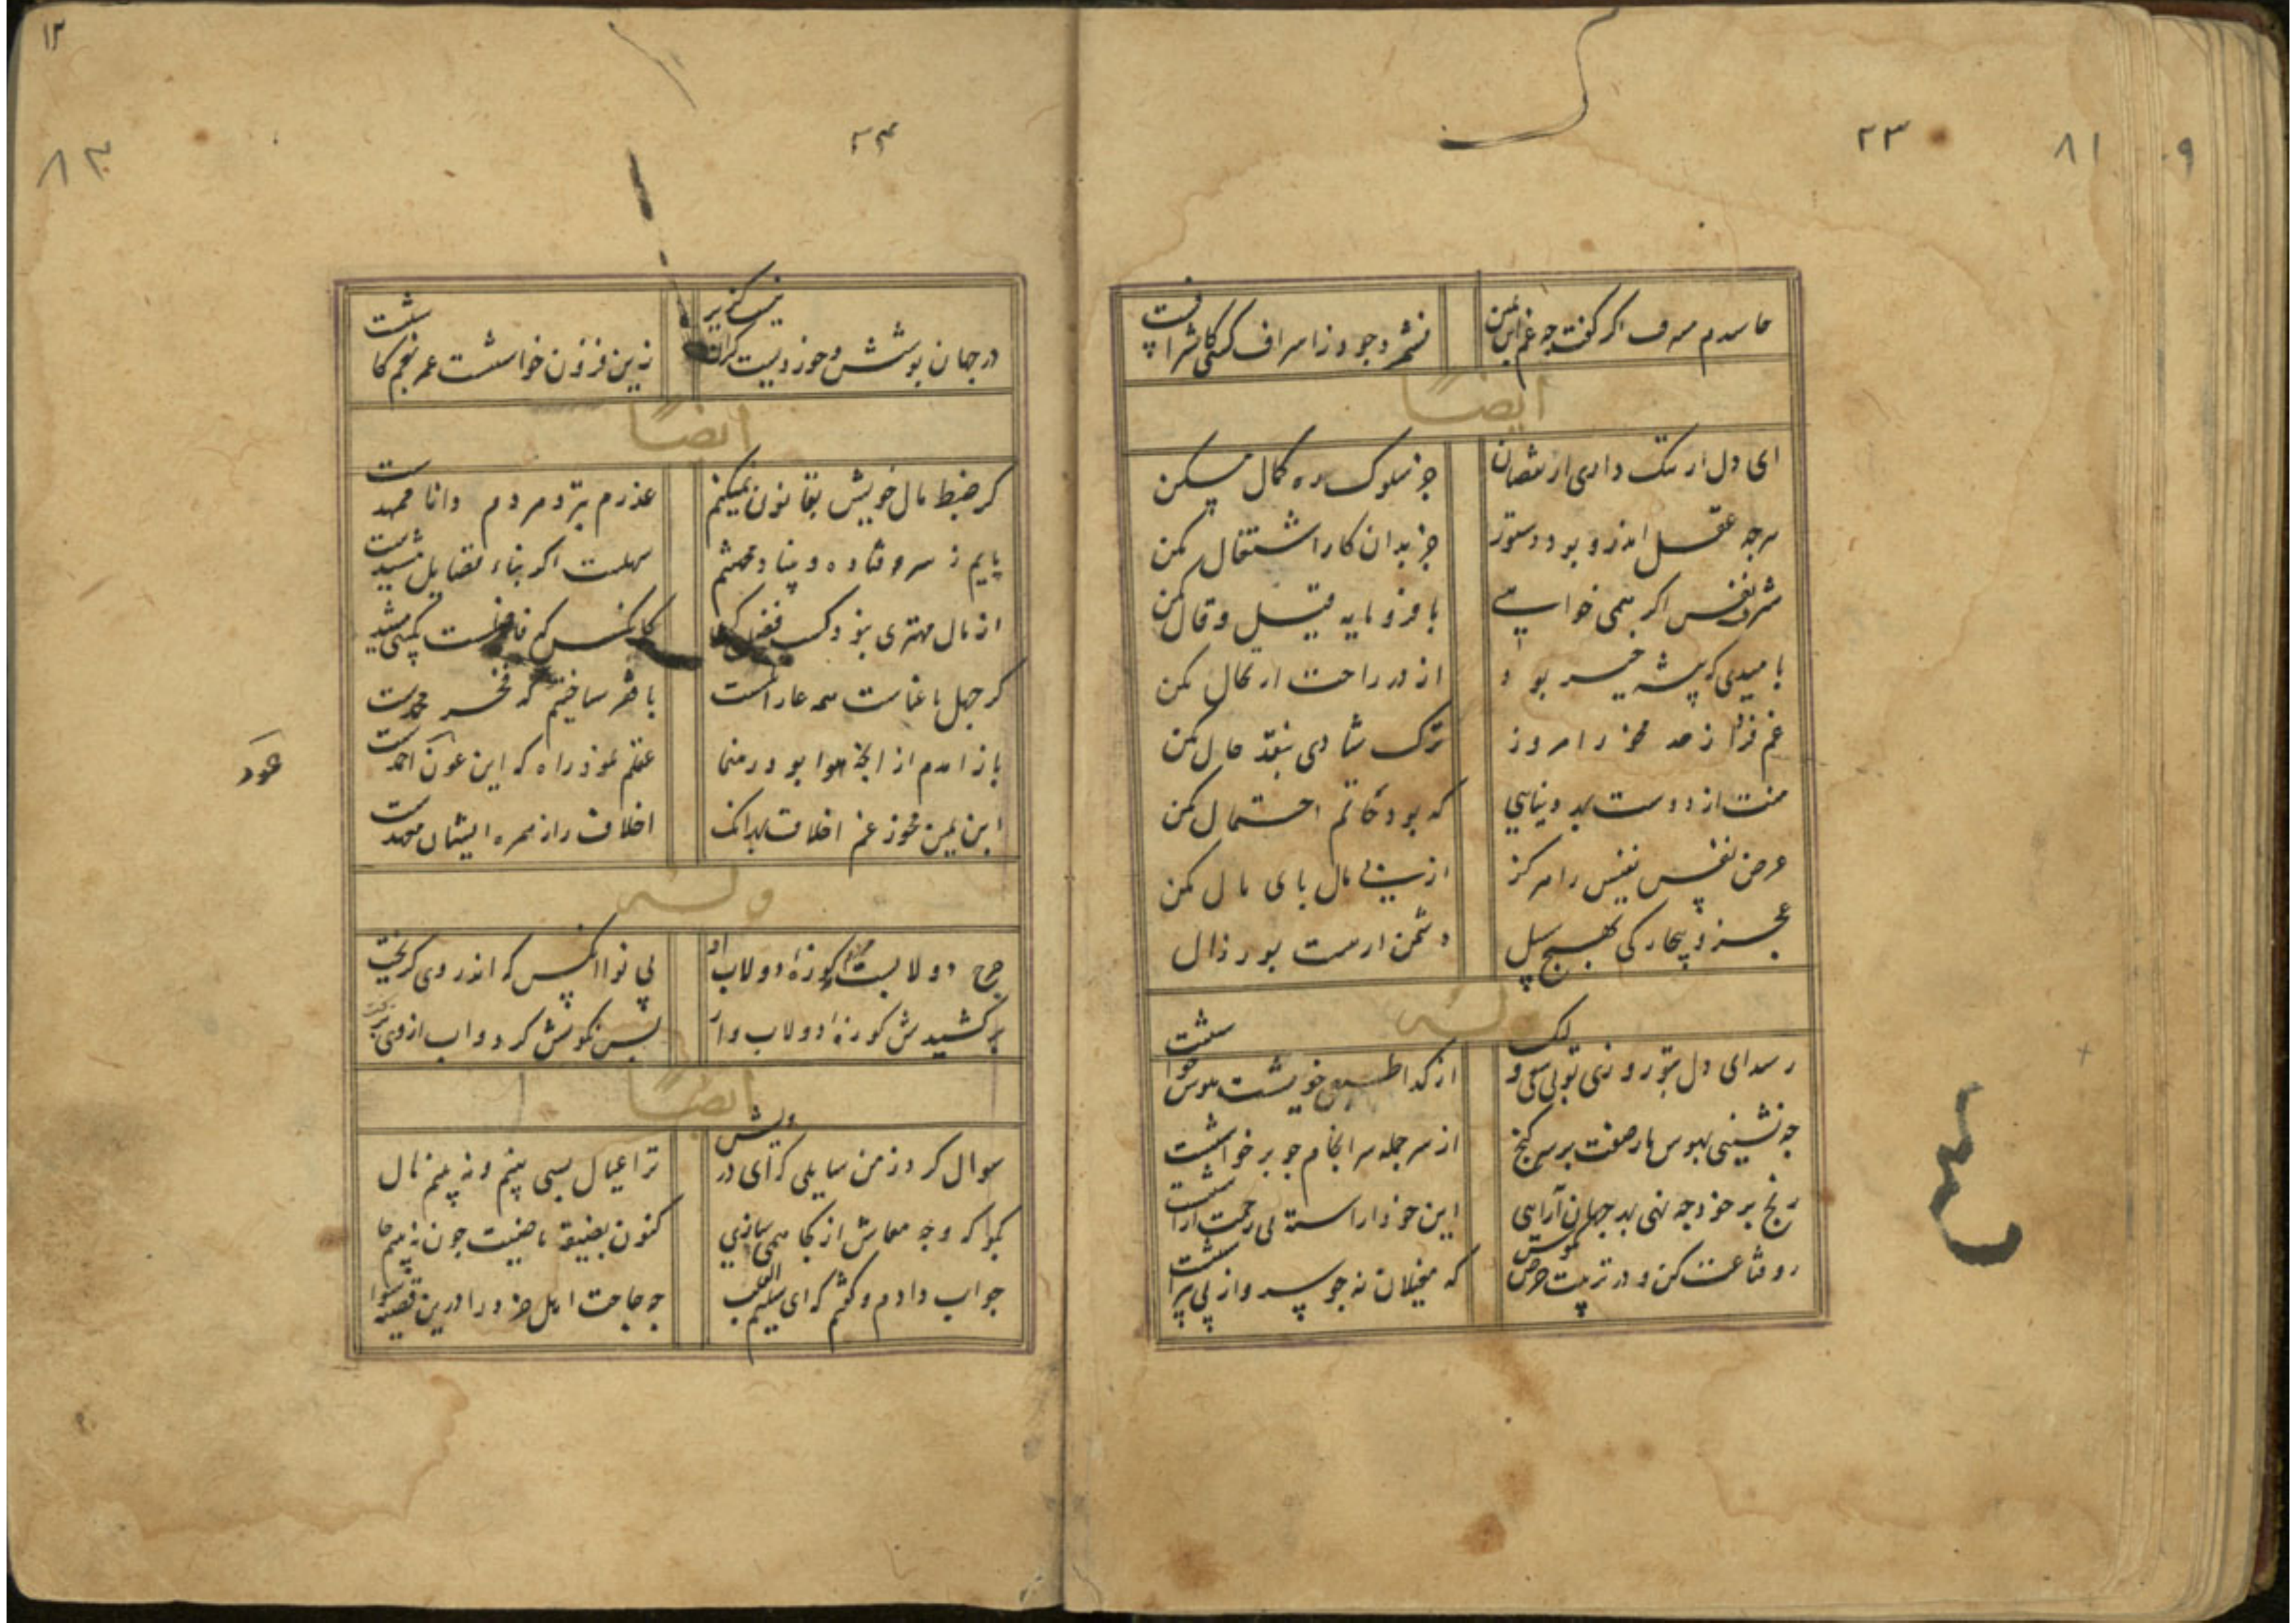 ۲۳
۸۱
۹
حاسدم مسرف اگر گفت چه غم ابن یمن
نشمرد جود ز اسراف کسی کاشراف
ایضاً
ای دل ار ننگ داری از نقصان
جز سلوک ره کمال مکن
هرچه عقل اندرو بود دستور
جز بدان کار اشتغال مکن
شرف نفس اگر همی خواهی
با فرومایه قیل و قال مکن
بامیدی که پیشه خیر بود
از در راحت ارتحال مکن
غم فردا ز مخور امروز
ترک شادی بنقد حال مکن
منت از دوست بهر دنیایی
که بود حاتم احتمال مکن
عرض نفس نفیس را هرگز
از پی مال پای مال مکن
عجز و بیچارگی بهیچ سبیل
دشمن ار هست پور زال
وله
رسد ای دل بتو روزی تو بی سعی و لیک
از گدا طبعی خویشت هوس خواست
چه نشینی بهوس مار صفت بر سر گنج
از سر جمله سرانجام چو برخواست
رنج بر خود چه نهی بهر جهان آرایی
این خود آراسته بی زحمت آراست
رو قناعت کن و در تربیت حرص مکوش
که مغیلان نه چو سرو از پی پیراست
۱۲
۸۲
۲۴
در جهان پوشش و خوردیست کزان نیست گزیر
زین فزون خواستنت عمر بغم کاست
ایضاً
گر ضبط مال خویش بقانون نمیکنم
عذرم بنزد مردم دانا ممهدست
پایم ز سر و فتاده و بنیاد محتشم
سهلست اگر بناء فضایل مشیدست
از مال مهتری نبود کسب فضل کن
کانکس که فاضلست
گر جهل با غناست همه عار
با فقر ساختیم که فخر محمدست
باز آمدم از آنچه هوا بود رهنما
عقلم نمود راه که این عون احمدست
ابن یمین مخور غم اخلاف بهر آنک
اخلاف را ز سمره ایشان معهدست
عود
وله
چرخ دولابیست کوزه دولاب
بی نوا آنکس که اندر وی گریخت
بر کشیدش کوزه دولاب وار
پس نگونش کرد و آب از وی بریخت
ایضاً
سوال کرد ز من سایلی که ای درویش
ترا عیال بسی بینم و نه بینم مال
بگو که وجه معاش از کجا همی سازی
کنون بضیعه ناصیت چون نه بینم حا
جواب دادم و گفتم که ای سلیم القلب
چه حاجت اهل خرد را درین قضیه سوا